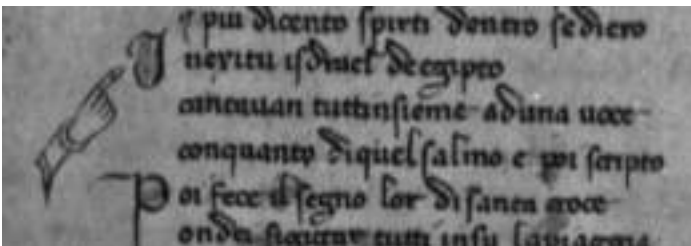 e piu dicento spirti dentro sediero
Inexitu isdrael deegipto
cantauan tuttinsieme aduna uoce
conquanto diquel salmo e poi scripto
Poi fece il segno lor disanta croce
tutti insu la